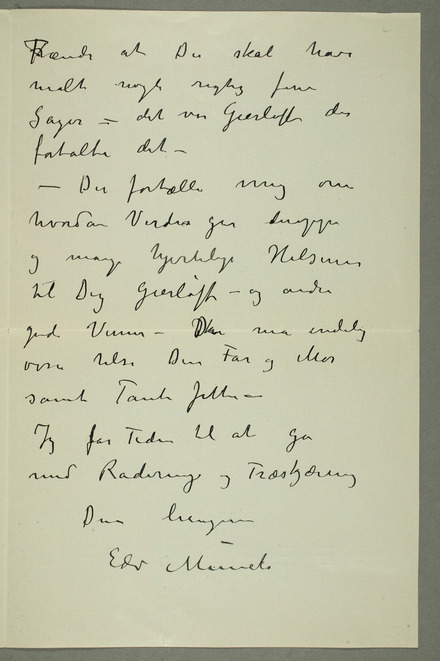 Frænde at Du skal have
malt nogle rigtig fine
Sager – det var Gierløff der
fortalte det –
– Du fortælle mig om
hvordan Verden går deroppe
og mange hjertelige Hilsener
til Dig Gierløff – og andre
gode Venner – Du må endelig
også hilse Din Far og Mor
samt Tante Jette –
Jeg får Tiden til at gå
med Raderinge og Træskjæring
Din hengivne
Edv Munch